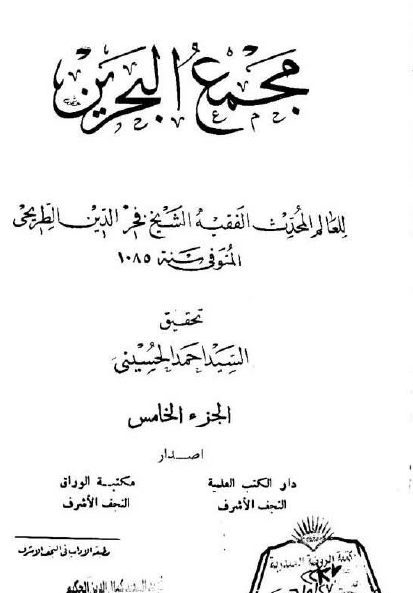 مجمع البحرين
للعالم المحدث الفقيه الشيخ فخر الدين الطريحي
المتوفى سنة ١٠٨٥
تحقيق
السيد احمد الحسيني
الجزء الخامس
اصدار
دار الكتب العلمية
النجف الأشرف
مكتبة الوراق
النجف الأشرف
مطبعة الاداب في النجف الاشرف
مكتبة الروضة الحيدرية